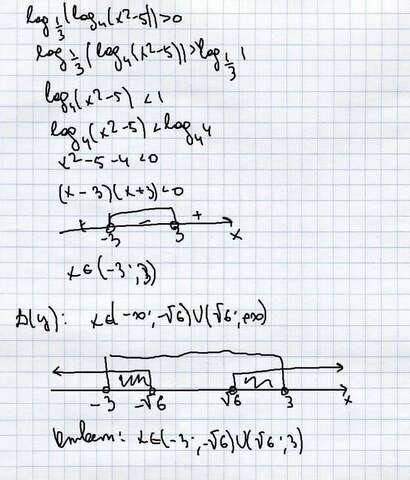 log 1/3 (log₄(x²-5))>0
log 1/3 (log₄(x²-5))>log 1/3 1
log₄(x²-5)<1
log₄(x²-5)<log₄4
x²-5-4<0
(x-3)(x+3)<0
+ - +
-3 3 x
x∈(-3;3)
D(y): x∈(-∞;-√6)∪(√6;∞)
-3 -√6 √6 3 x
Ответ: x∈(-3;-√6)∪(√6;3)